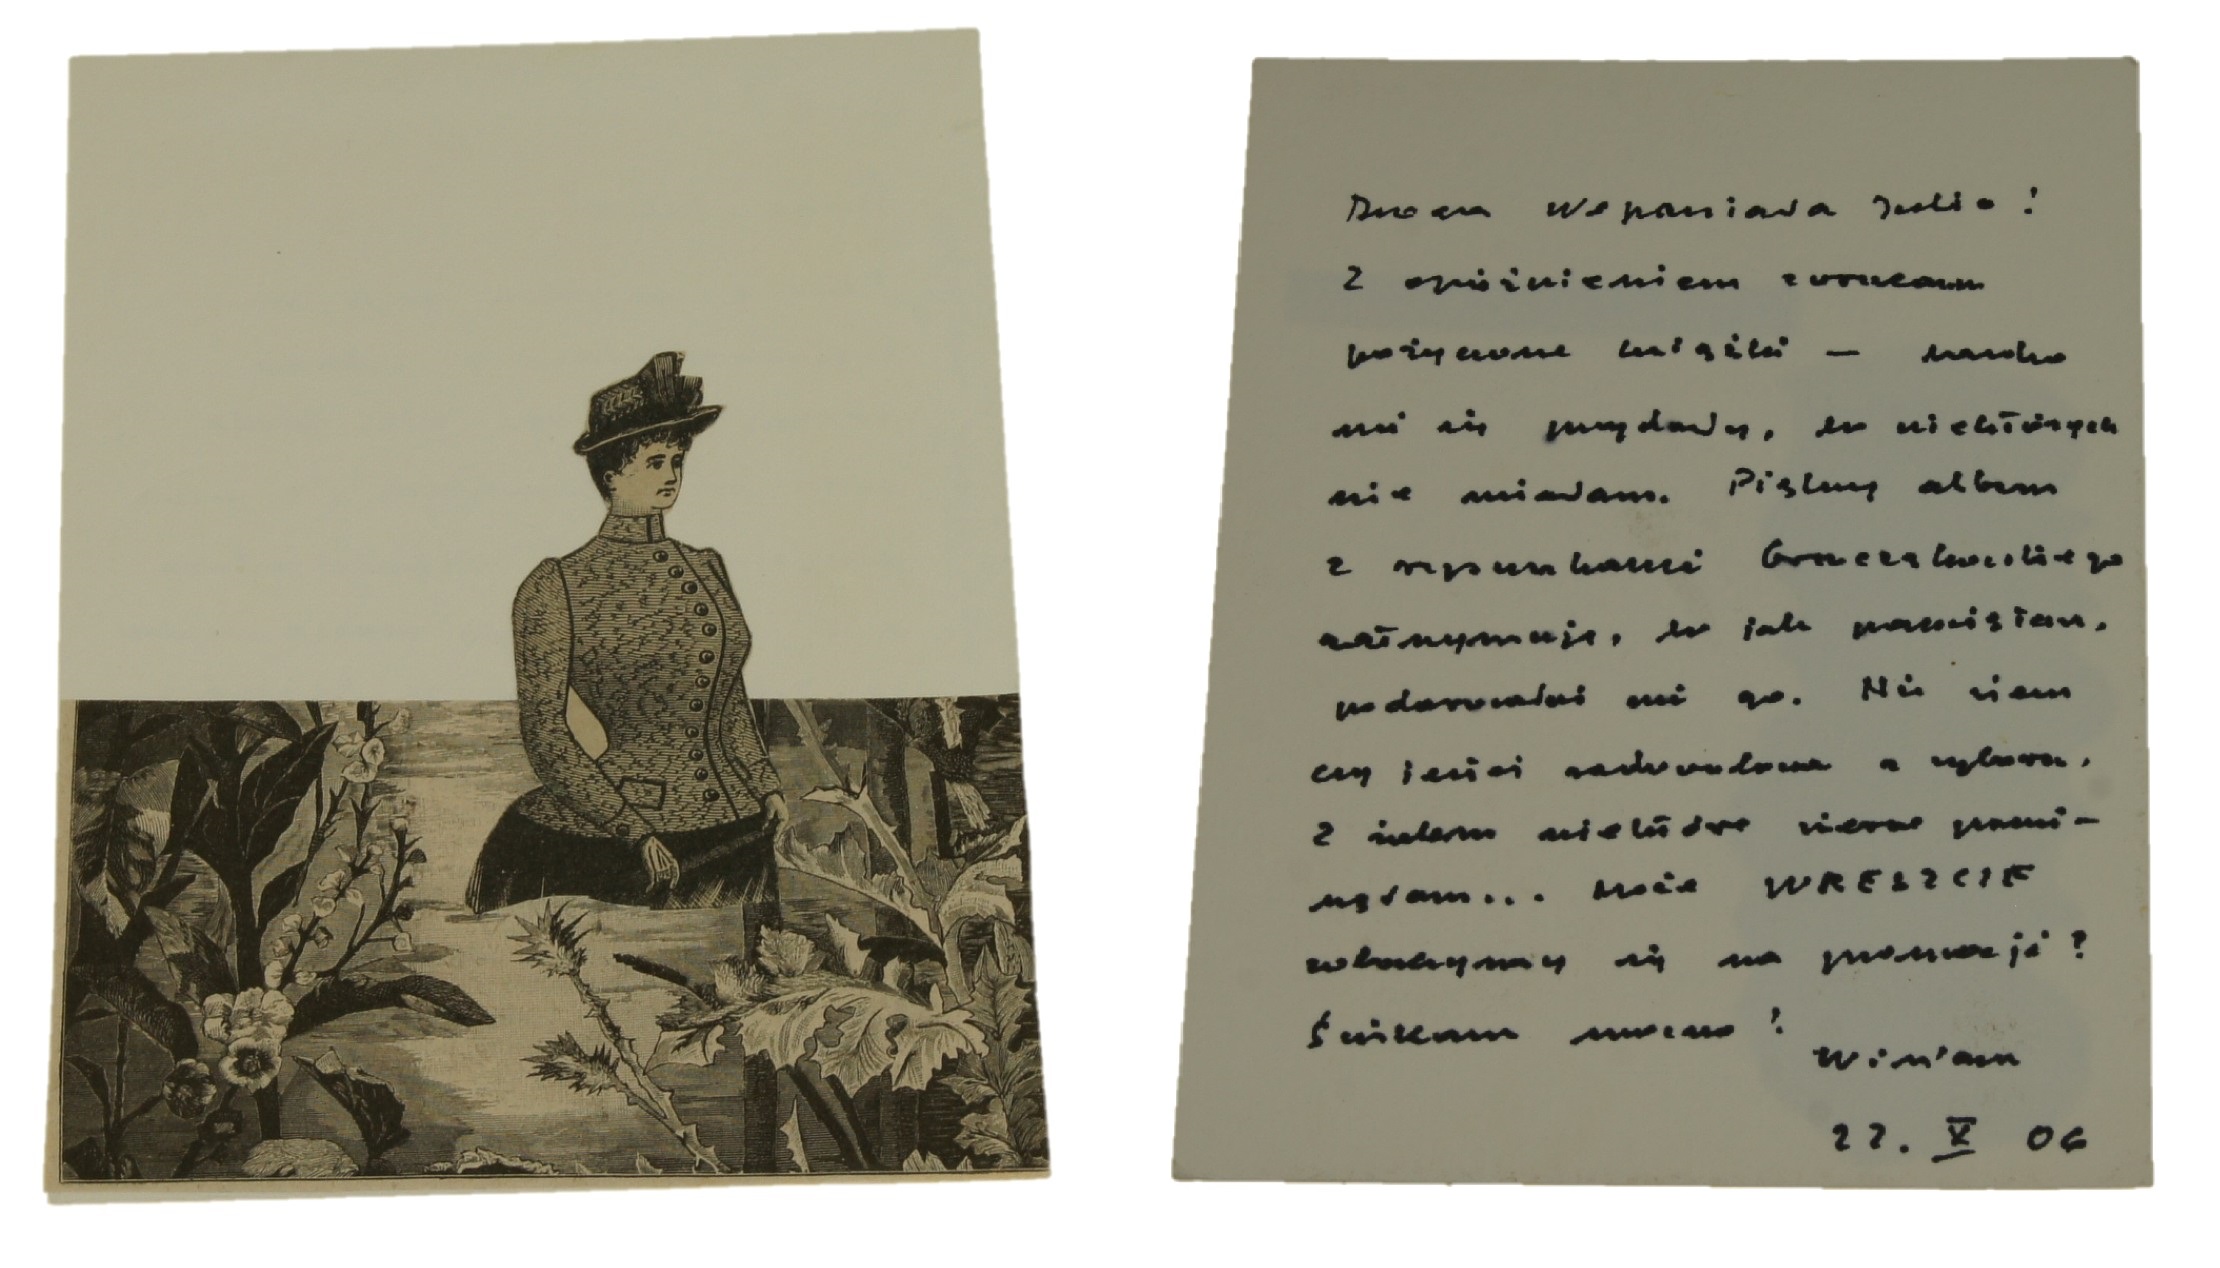 Droga Wspaniała Julio!
Z opóźnieniem zwracam
pożyczone książki — bardzo
mi się przydały, bo niektórych
nie miałam. Piękny album
z rysunkami
zatrzymuję, bo jak pamiętam,
podarowałaś mi go. Nie wiem
czy jesteś zadowolona z wyboru,
Z żalem niektóre wiersze pomi-
nęłam... Może WRESZCIE
zobaczymy się na promocji?
Ściskam mocno!
22. V 06